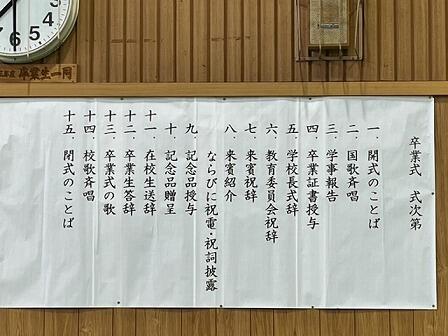 卒業式　式次第
一．開式のことば
二．国歌斉唱
三．学事報告
四．卒業証書授与
五．学校長式辞
六．教育委員会祝辞
七．来賓祝辞
八．来賓紹介
ならびに祝電・祝詞披露
九．記念品授与
十．記念品贈呈
十一．在校生送辞
十二．卒業生答辞
十三．卒業式の歌
十四．校歌斉唱
十五．閉式のことば
卒業生一同